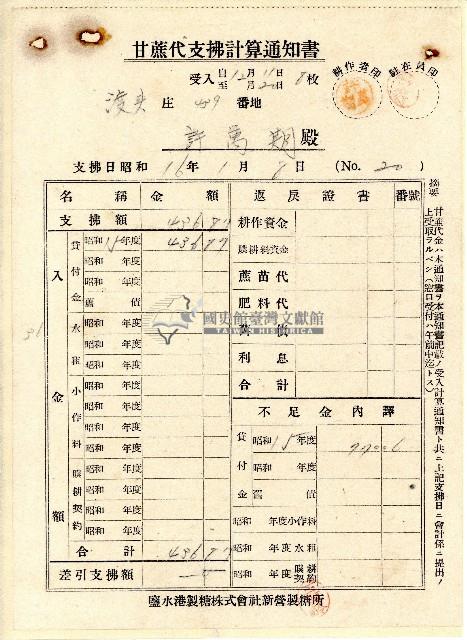 甘蔗代支拂計算通知書
受入 自12月11日 至 月20日 8枚
耕作者印
駐在員印
庄 番地
許萬期殿
支拂日昭和16年1月8日 (No. 20)
名稱 金額
支拂額 436 87
入金額
貸付金
昭和15年度 436 87
昭和 年度
昭和 年度
舊債
永租小作料贌耕契約
昭和 年度
昭和 年度
昭和 年度
昭和 年度
昭和 年度
昭和 年度
昭和 年度
昭和 年度
昭和 年度
昭和 年度
昭和 年度
合計 436 87
差引支拂額
返戻證書 番號
耕作資金
贌耕料資金
蔗苗代
肥料代
舊債
利息
合計
不足金內譯
貸付金
昭和15年度
昭和 年度
舊債
昭和 年度小作料
昭和 年度永租
昭和 年度贌耕契約
摘要 甘蔗代金ハ本通知書ヲ本通知書記載ノ受入計算通知書ト共ニ上記支拂日ニ會計係ニ提出ノ
上受取ラルベシ(窓口受付ハ午前中迄トス)
鹽水港製糖株式會社新營製糖所
國史館臺灣文獻館
TAIWAN HISTORICA